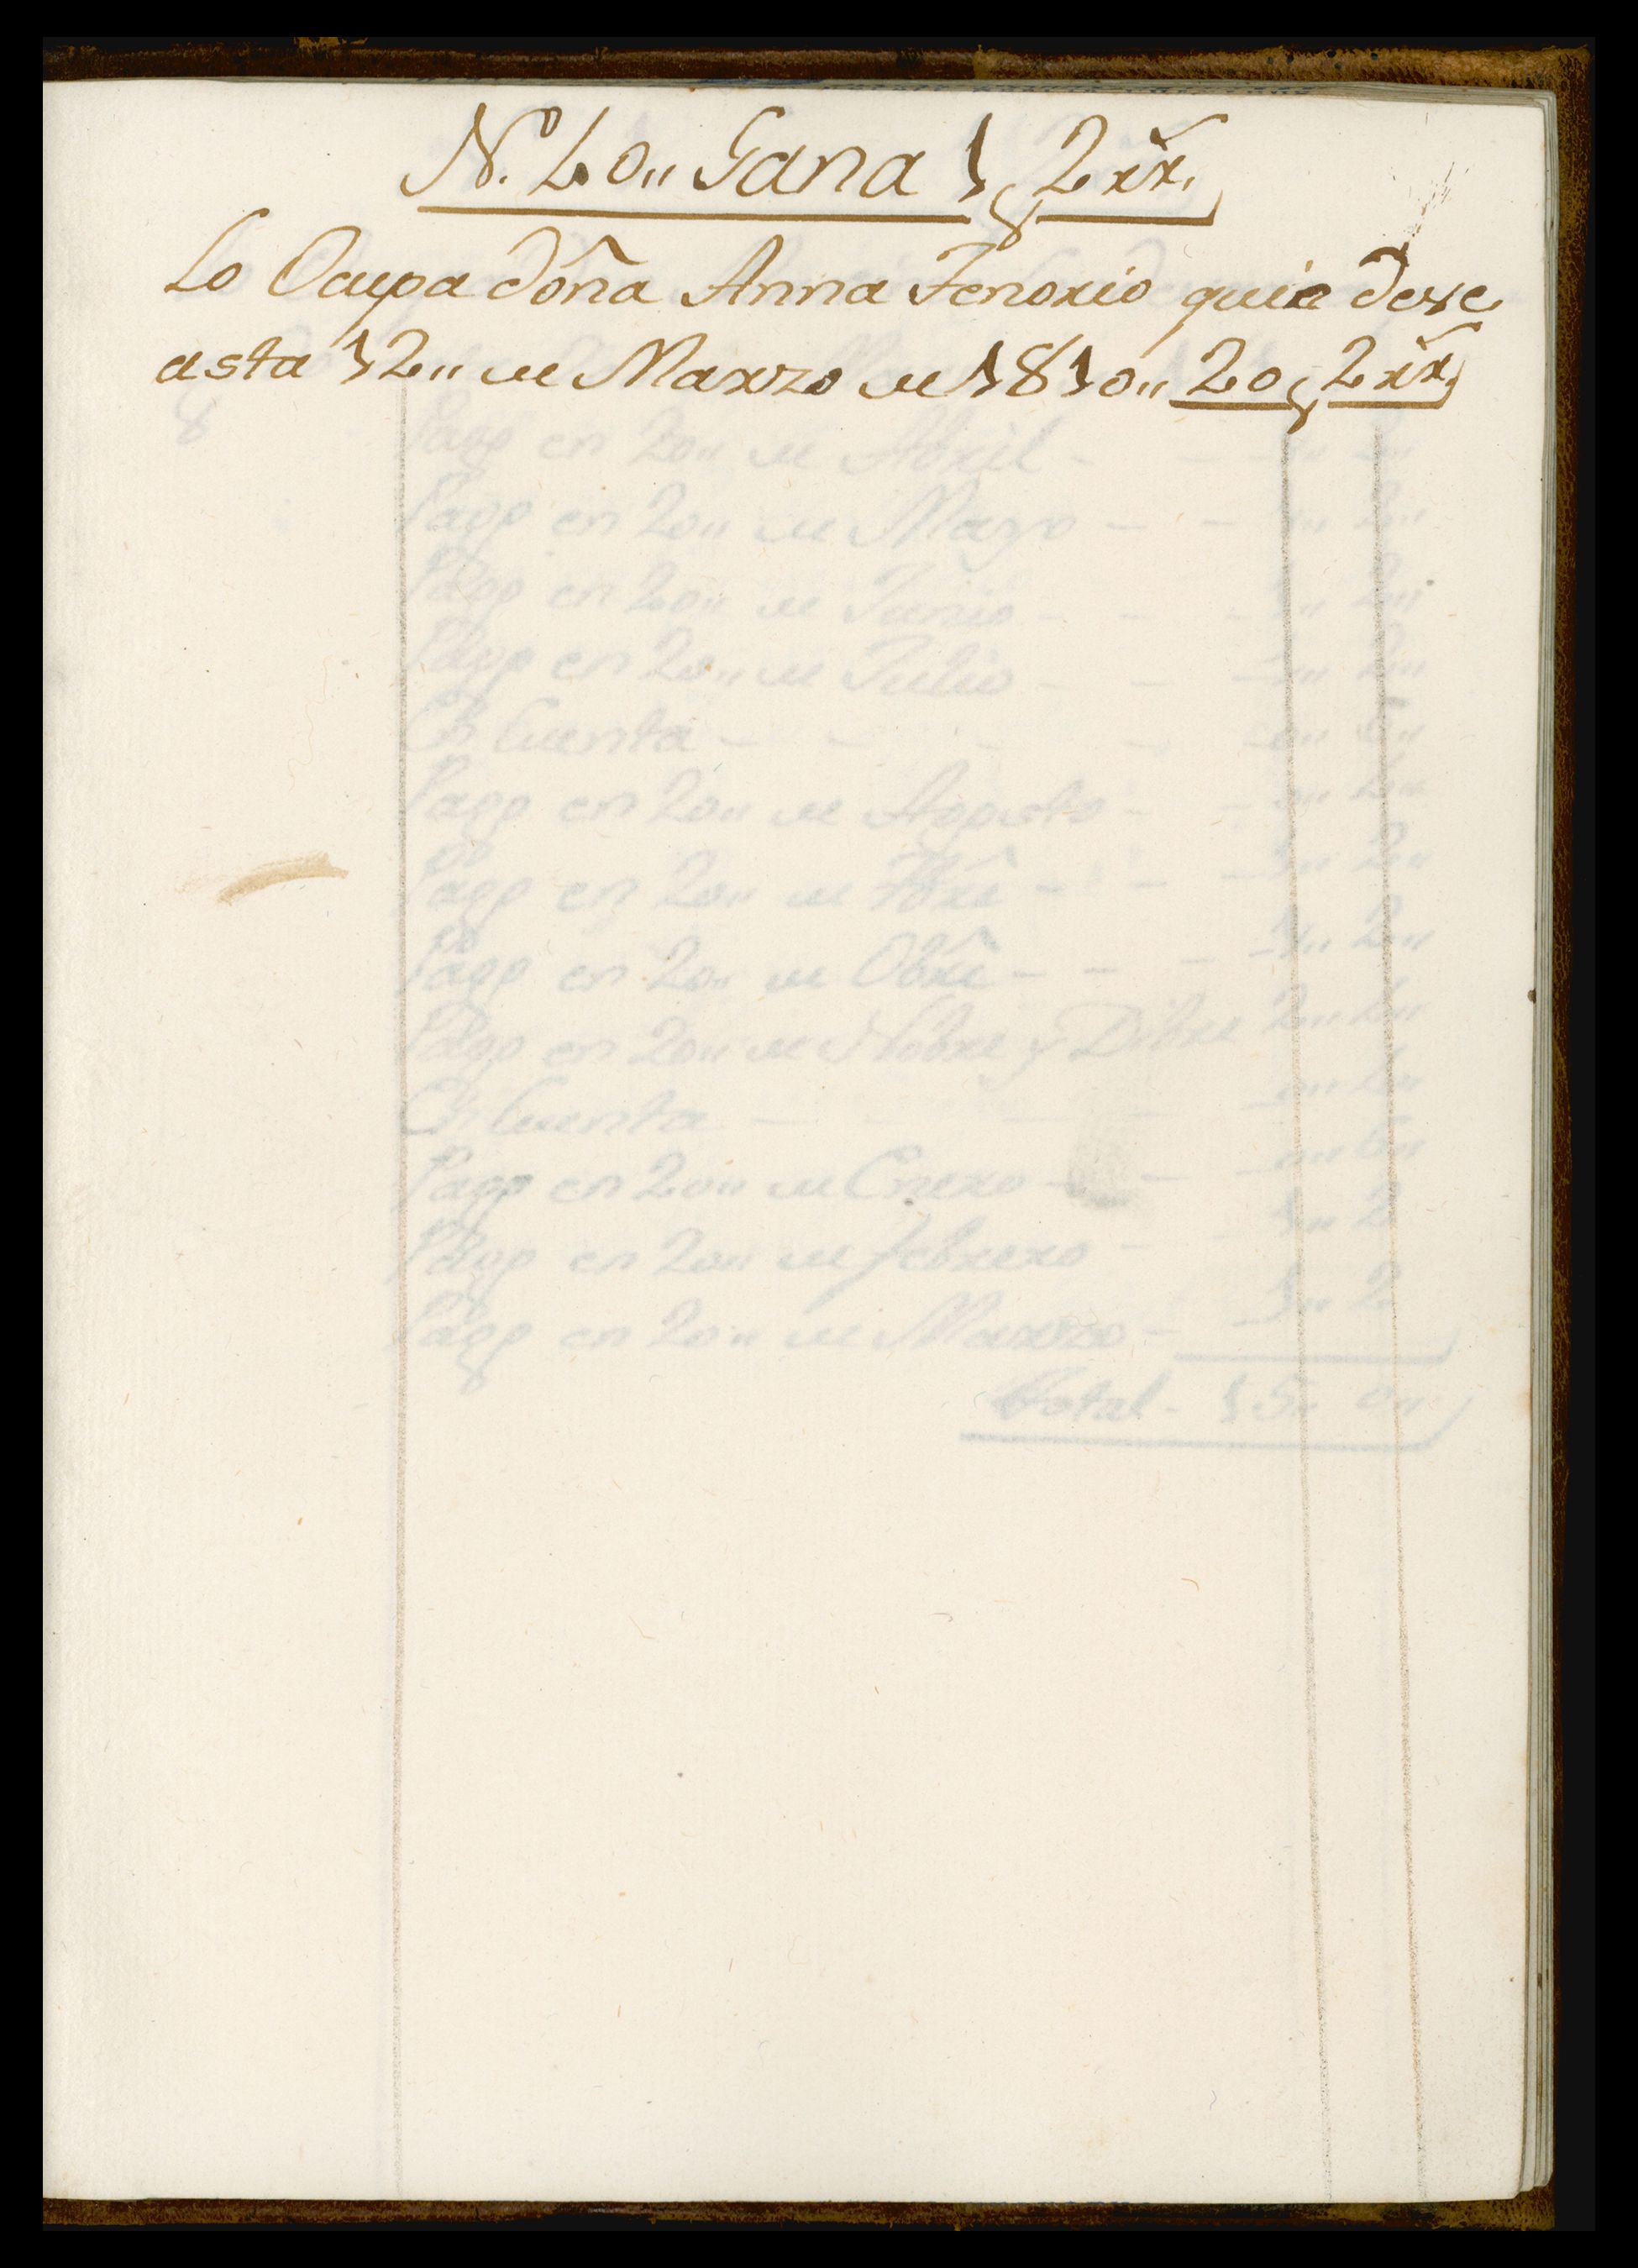 Nº. 20,, Gana 1 p 2 rr.
Lo Ocupa doña Anna Tenorio quie deve
asta 12,, de Marzo de 1810,, 20 p 2 rr.
Pago en 20,, de Abril - - 1,, 2,,
Pago en 20,, de Mayo - - 1,, 2,,
Pago en 20,, de Junio - - - 1,, 2,,
Pago en 20,, de Julio - - - 1,, 2,,
En Cuenta - - - - - 0,, 6,,
Pago en 20,, de Agosto - - 0,, 4,,
Pago en 20,, de 7bre - - - 1,, 2,,
Pago en 20,, de Obre - - - 1,, 2,,
Pago en 20,, de Nobre y Dibre 2,, 4,,
En Cuenta - - - - 0,, 4,,
Pago en 20,, de Enero - - - 0,, 6,,
Pago en 20,, de febrero - - 1,, 2
Pago en 20,, de Marzo - 1,, 2
Total - 15,, 0,,